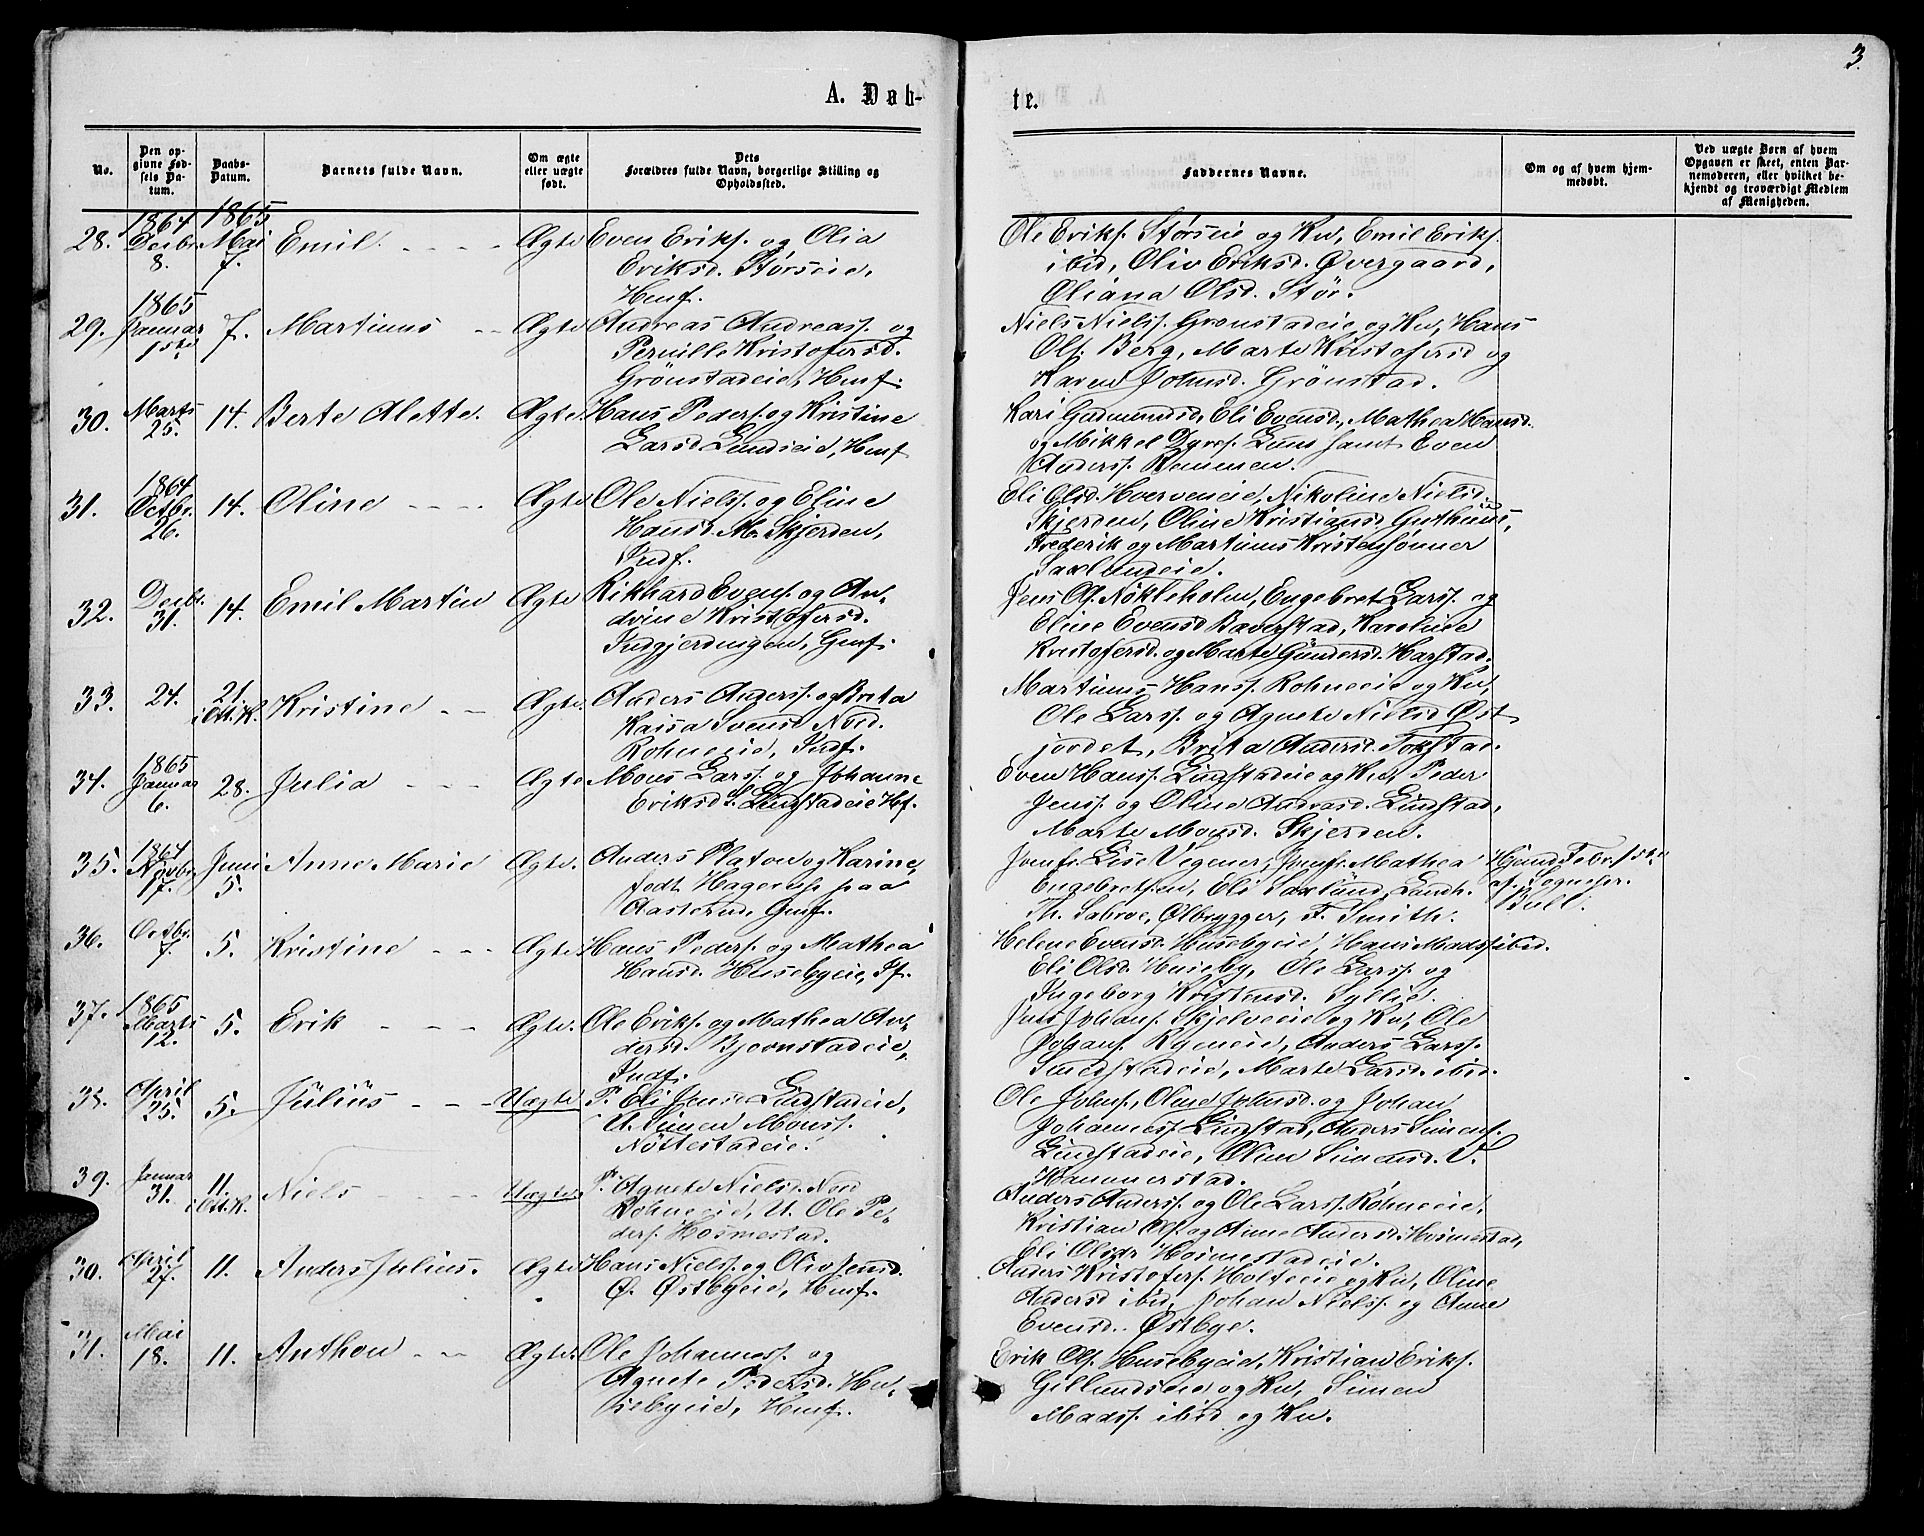 3.
A. Døb-
te.
No.
Den opgivne Fødsels Datum.
Daabs-Datum.
Barnets fulde Navn.
Om ægte eller uægte født.
Dets Forældres fulde Navn, borgerlige Stilling og Opholdssted.
Faddernes Navne.
Om og af hvem hjemmedøbt.
Ved uægte Børn af hvem Opgaven er skeet, enten Barnemoderen, eller hvilket bekjendt og troværdigt Medlem af Menigheden.
28. 1864 Decbr. 8. 1865 Mai 7. Emil. Ægte Even Eriks. og Olia
Eriksd. Størseie,
Hmf.
Ole Eriks. Størseie og Kv, Emil Eriks.
ibid, Oliv Eriksd. Øvergaard,
Oliana Olsd. Stør.
29. 1865 Januar 15de 7. Martinus Ægte Andreas Andreass. og
Pernille Kristofersd.
Grönstadeie, Hmf.
Niels Nielss. Grönstadeie og Kv, Hans
Ols. Berg, Marte Kristofersd og
Karen Johnsd. Grönstad.
30. Marts 25. 14. Berte Alette. Ægte Hans Peders. og Kristine
Larsd Lundseie, Hmf
Kari Gudmundsd, Eli Evensd., Mathea Hansd.
og Mikkel Dyres. Lund samt Even
Anderss. Remmen.
31. 1864 Octbr. 26. 14. Oline Ægte Ole Nielss. og Eline
Hansd. M. Skjerden,
Indf.
Eli Olsd. Hverveneie, Nikoline Nielsd.
Skjerden, Oline Kristiansd. Guthuus,
Frederik og Martinus Kristensønner
Saxlundeie.
32. Decbr. 31. 14. Emil Martin Ægte Rikhard Evens. og An-
drine Kristofersd.
Indgjerdingen, Gmf.
Jens Ols. Nökleholm, Engebret Larss. og
Eline Evensd Baverstad, Karoline
Kristofersd. og Marte Gundersd. Harstad.
33. 24. 21. i Ott. K. Kristine Ægte. Anders Anderss. og Brita
Kaisa Svensd Nord.
Rohneeie, Indf.
Martinus Hanss. Rohneeie og Kv,
Ole Larss. og Agnete Nielsd Øst
jordet, Brita Andersd. Tokstad.
34. 1865 Januar 6. 28. Julia Ægte Mons Larss. og Johanne
Eriksd S. Lundstadeie Hf.
Even Hanss. Lundstadeie og Kv, Peder
Jenss. og Oline Andreasd. Lundstad,
Marte Monsd. Skjerden.
35. 1864 Novbr. 17. Juni 5. Anne Marie Ægte. Anders Platou og Karine,
født Hagerup paa
Aasterud, Gmf.
Jomfr. Lise Vegener, Jomfr. Mathea
Engebretsen, Eli Saxlund, Landh.
Th. Sabroe, Ølbrygger, F. Smith.
Hjmd Febr. 15de
af Sognepr.
Bull.
36. Octbr. 7. 5. Kristine Ægte Hans Peders. og Mathea
Hansd. Husebyeie, If.
Helene Evensd. Husebyeie, Hans Madss. ibid.
Eli Olsd. Huseby, Ole Larss. og
Ingeborg Kristensd. Syllie.
37. 1865 Marts 12. 5. Erik Ægte. Ole Eriks. og Mathea An-
dersd. Bjornstadeie,
Indf.
Johans. Skjelveeie og Kv, Ole
Johans. Ryeneie, Anders Larss.
Smedstadeie, Marte Larsd. ibid.
38. April 25. 5. Julius Uægte P. Eli Jensd Lundstadeie,
U. Simen Monss.
Nöttestadeie.
Ole Johns., Oline Johnsd. og Johan
Johanness Lundstad, Anders Simens.
Lundstadeie, Oline Simensd. V.
Hammerstad.
39. Januar 31. 11. i Ott. K. Niels Uægte. P. Agnete Nielsd. Nord
Rohneeie, U. Ole Pe-
ders. Hosmestad.
Anders Anderss. og Ole Larss. Rohneeie,
Kristian Ols. og Anne Andersd. Hosmestad,
Eli Olsdr Hosmestadeie.
30. April 27. 11. Anders Julius. Ægte Hans Nielss. og Oliv Jensd.
Ø. Østbyeie, Hmf.
Anders Kristofers. Holteeie og Kv, Oline
Andersd ibid, Johan Nielss. og Anne
Evensd. Østbye.
31. Mai 18. 11. Anthon Ægte. Ole Johanness. og
Agnete Pedersd. Hu-
sebyeie, Hmf.
Erik Ols. Husebyeie, Kristian Eriks.
Gillundseie og Kv, Simen
Madss. ibid og Kv.